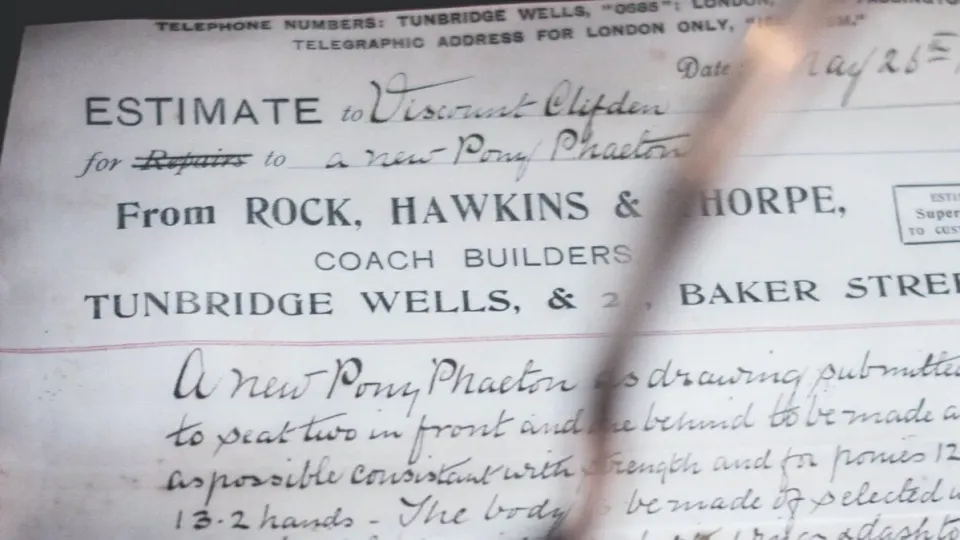 TELEPHONE NUMBERS: TUNBRIDGE WELLS, "0685"; LONDON,
TELEGRAPHIC ADDRESS FOR LONDON ONLY,
Date May 26th
ESTIMATE to Viscount Clifden
for Repairs to a new Pony Phaeton
From ROCK, HAWKINS & THORPE,
COACH BUILDERS
TUNBRIDGE WELLS, & 2 , BAKER STREE
A new Pony Phaeton as drawing submitted
to seat two in front and one behind to be made a
as possible consistent with strength and for ponies 12
13.2 hands - The body to be made of selected
dash to